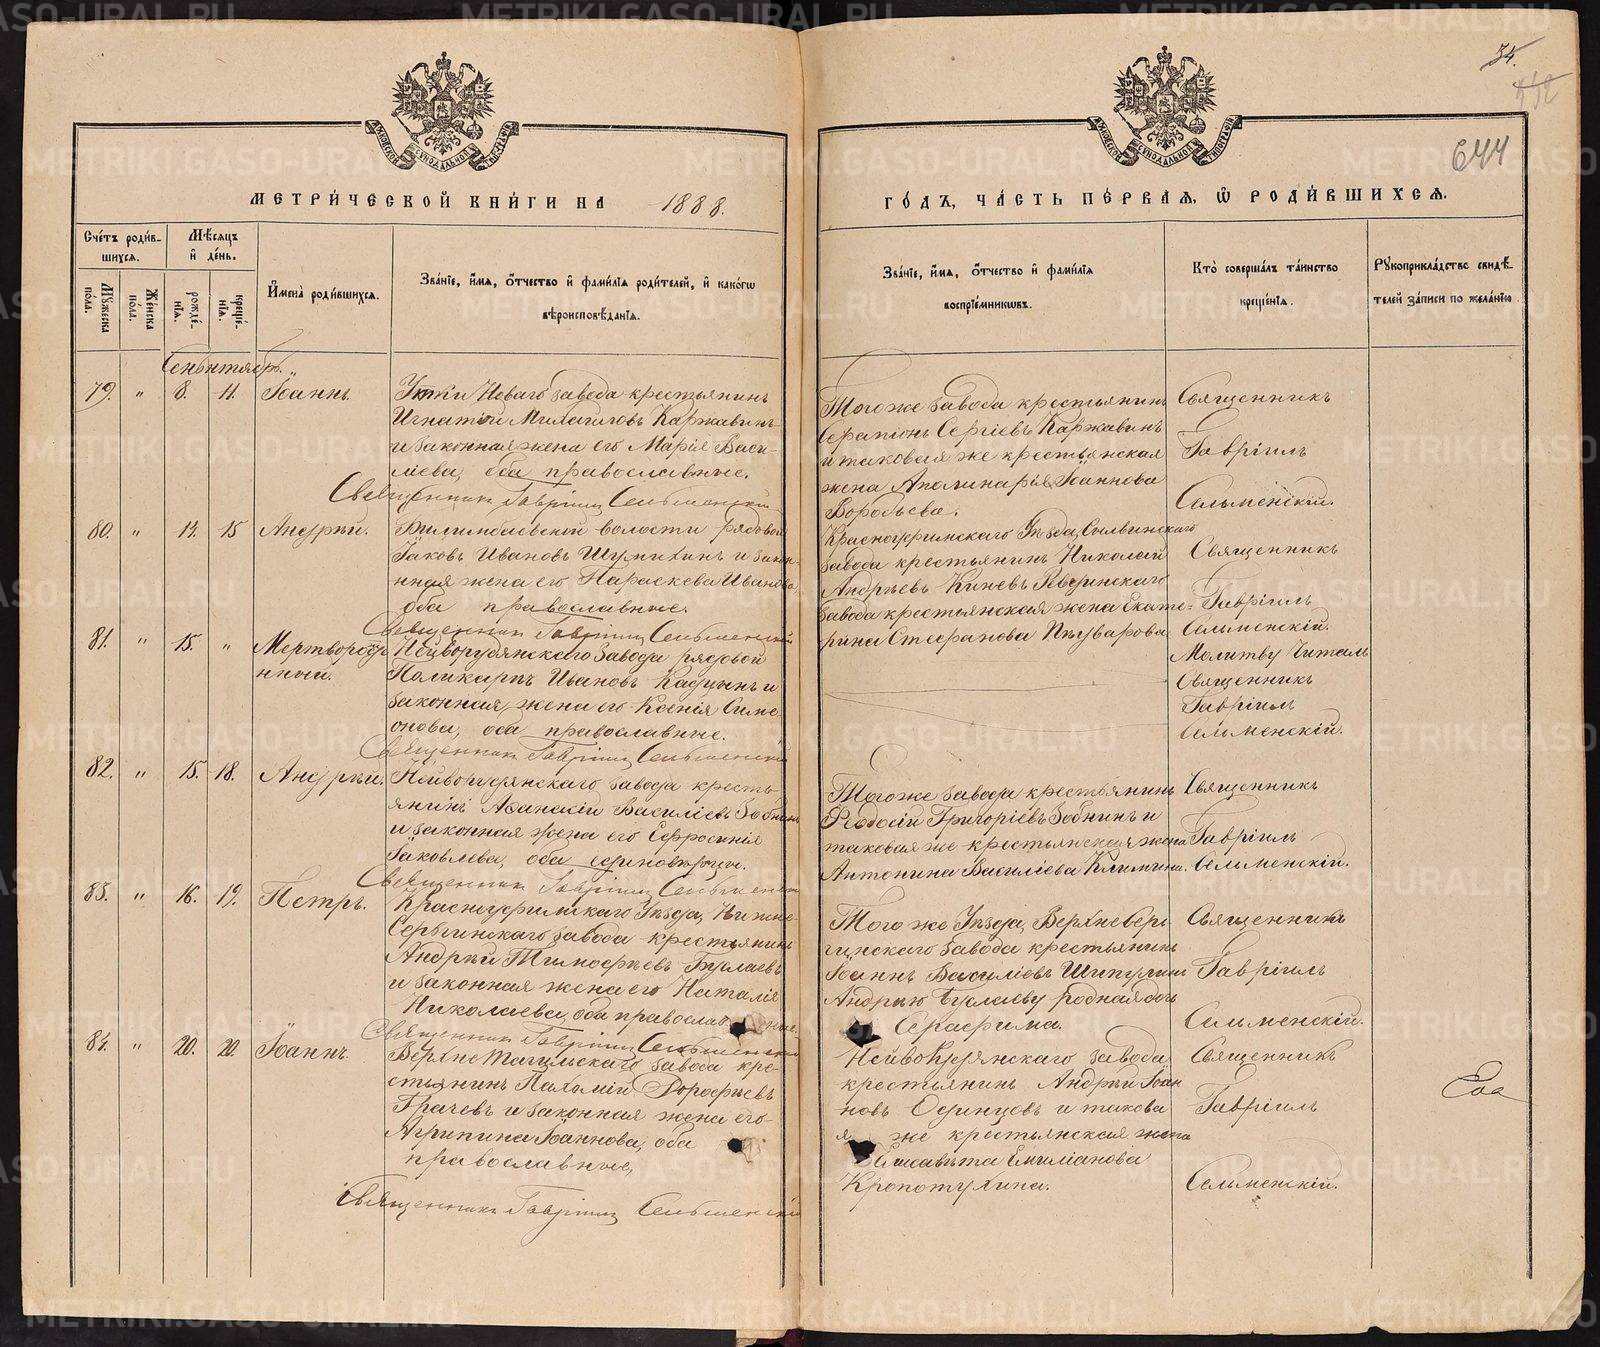 34.
644
МЕТРИ́ЧЕСКОЙ КНИ́ГИ НА 1888.
ГО́ДЪ, ЧА́СТЬ ПЕ́РВАЯ, Ѿ РОДИ́ВШИХСЯ.
Сче́тъ роди́в-
шихся.
Мѣ́сяцъ
и҆ де́нь.
Мꙋ́жеска по́ла.
Же́нска по́ла.
рожде́-
нїя.
креще́-
нїя.
И҆мена̀ роди́вшихся.
Зва́нїе, и҆́мя, ѻ҆́тчество и҆ фамı́лїѧ роди́телей, и҆ како́гѡ
вѣроисповѣ́данїя.
Зва́нїе, и҆́мя, ѻ҆́тчество и҆ фамı́лїѧ
воспрїе́мникѡвъ.
Кто̀ соверша́лъ та́инство
креще́нїя.
Рꙋкоприкла́дство свидѣ́-
телей за́писи по жела́нїю.
Сеньтябрь.
79. " 8. 11. Іоаннъ.
Утки Новаго завода крестьянинъ
Игнатій Михайловъ Каржавинъ
и законная жена его Марія Васи-
ліева, оба православные.
Священникъ Гавріилъ Сельменскій
Того же завода крестьянинъ
Серапіонъ Сергіевъ Каржавинъ
и таковая же крестьянская
жена Аполинарія Іоаннова
Воробьева.
Священникъ
Гавріилъ
Сельменскій.
80. " 14. 15 Андрей.
Билимбаевской волости рядовой
Іаковъ Ивановъ Шумихинъ и закон-
ная жена его Параскева Иванова
оба православные.
Священникъ Гавріилъ Сельменскій
Красноуфимскаго Уѣзда, Сылвинскаго
завода крестьянинъ Николай
Андреевъ Киневъ Ревдинскаго
завода крестьянская жена Екате-
рина Стефанова
Священникъ
Гавріилъ
Сельменскій.
81. " 15. " Мертворожде
нный.
Нейворудянскаго завода рядовой
Поликарпъ Ивановъ Кадцынъ и
законная жена его Ксенія Симе-
онова, оба православные.
Священникъ Гавріилъ Сельменскій
Молитву читалъ
Священникъ
Гавріилъ
Сельменскій.
82. " 15. 18. Андрей.
Нейворудянскаго завода кресть-
янинъ Василіевъ Зобнинъ
и законная жена его Ефросинія
Іаковлева, оба единовѣрцы.
Священникъ Гавріилъ Сельменскій
Того же завода крестьянинъ
Ѳеодосій Григоріевъ Зобнинъ и
таковая же крестьянская жена
Антонина Василіева
Священникъ
Гавріилъ
Сельменскій.
83. " 16. 19. Петръ.
Красноуфимскаго Уѣзда, Нижне-
Сергинскаго завода крестьянинъ
Андрей Тимофеевъ Булаевъ
и законная жена его Наталія
Николаева, оба православные
Священникъ Гавріилъ Сельменскій
Того же Уѣзда, Верхнесерг
инскаго завода крестьянинъ
Іоаннъ Василіевъ
Андрею Булаеву родная дочь
Серафима.
Священникъ
Гавріилъ
Сельменскій.
84. " 20. 20. Іоаннъ.
Верхне Тагильскаго завода кре-
стьянинъ Пахомій Дорофеевъ
Грачевъ и законная жена его
Агрипина Іоаннова, оба
православные,
Священникъ Гавріилъ Сельменскій
Нейворудянскаго завода
крестьянинъ Андрей Іоан
новъ Одинцовъ и такова
я же крестьянская жена
Елисавета Емиліанова
Кропотухина.
Священникъ
Гавріилъ
Сельменскій.
METRIKI.GASO-URAL.RU